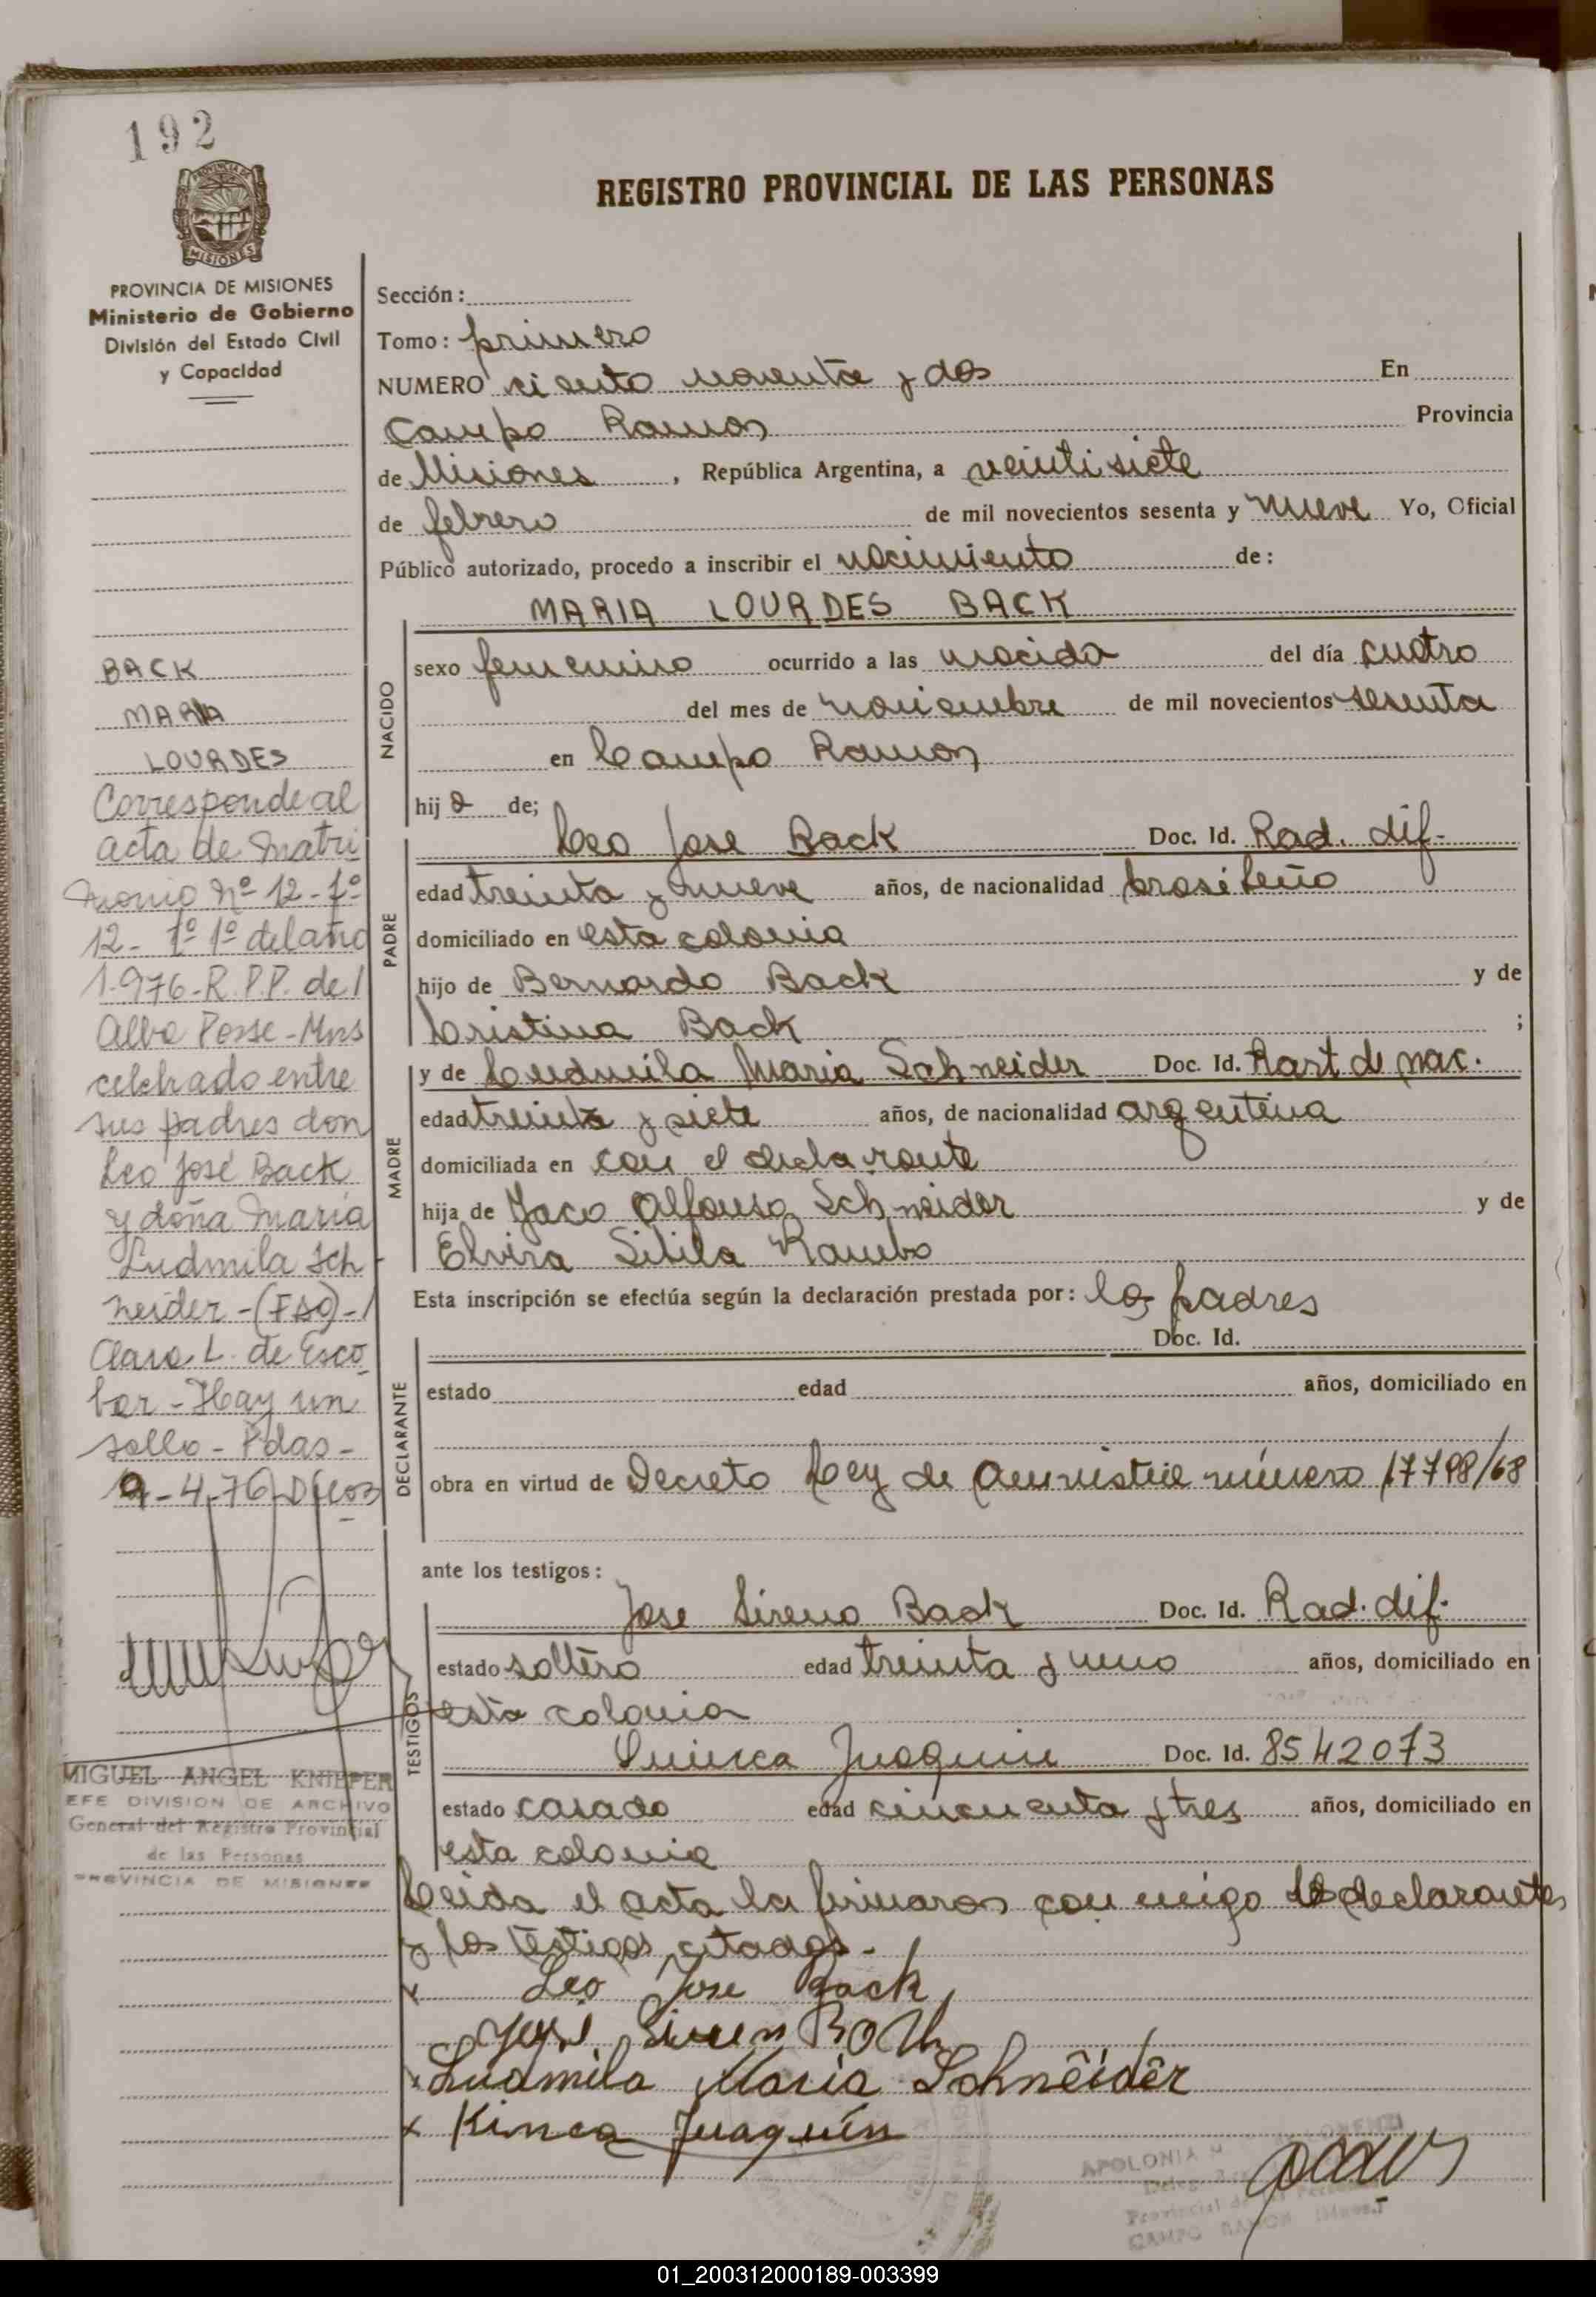 192
MISIONES
REGISTRO PROVINCIAL DE LAS PERSONAS
PROVINCIA DE MISIONES
Ministerio de Gobierno
División del Estado Civil
y Capacidad
BACK
MARIA
LOURDES
Corresponde al
acta de Matri
monio Nº 12-Fº
12- Tº 1º del año
1.976-R.P.P. de
Alba Posse-Mns
celebrado entre
sus padres don
Leo José Back
y doña María
Ludmila Sch
neider-(FdO)-
Clara L. de Esco
bar-Hay un
sello-Pdas-
9-4-76
MIGUEL ANGEL KNIEPER
JEFE DIVISION DE ARCHIVO
General del Registro Provincial
de las Personas
PROVINCIA DE MISIONES
Sección:
Tomo: primero
NUMERO ciento noventa y dos En
Campo Ramon Provincia
de Misiones, República Argentina, a veintisiete
de febrero de mil novecientos sesenta y nueve Yo, Oficial
Público autorizado, procedo a inscribir el nacimiento de:
MARIA LOURDES BACK
NACIDO
sexo femenino ocurrido a las nacida del día cuatro
del mes de noviembre de mil novecientos sesenta
en Campo Ramon
hija de;
PADRE
Leo Jose Back Doc. Id. Rad. dif.
edad treinta y nueve años, de nacionalidad brasileño
domiciliado en esta colonia
hijo de Bernardo Back y de
Cristina Back ;
MADRE
y de Ludmila Maria Schneider Doc. Id. Part de nac.
edad treinta y siete años, de nacionalidad argentina
domiciliada en con el declarante
hija de Jaco Alfonso Schneider y de
Elvira Sibila Rambo
Esta inscripción se efectúa según la declaración prestada por: los padres
DECLARANTE
Doc. Id.
estado edad años, domiciliado en
obra en virtud de Decreto Ley de Amnistia número 17798/68
ante los testigos:
TESTIGOS
Jose Sireno Back Doc. Id. Rad. dif.
estado soltero edad treinta y uno años, domiciliado en
esta colonia
Juaquin Doc. Id. 8542073
estado casado edad cincuenta y tres años, domiciliado en
esta colonia
Leida el acta la firmaron con migo los declarantes
y los testigos citados.-
x Leo Jose Back
x Ludmila Maria Schneider
x Kinca Juaquín
APOLONIA
CAMPO RAMON
01_200312000189-003399